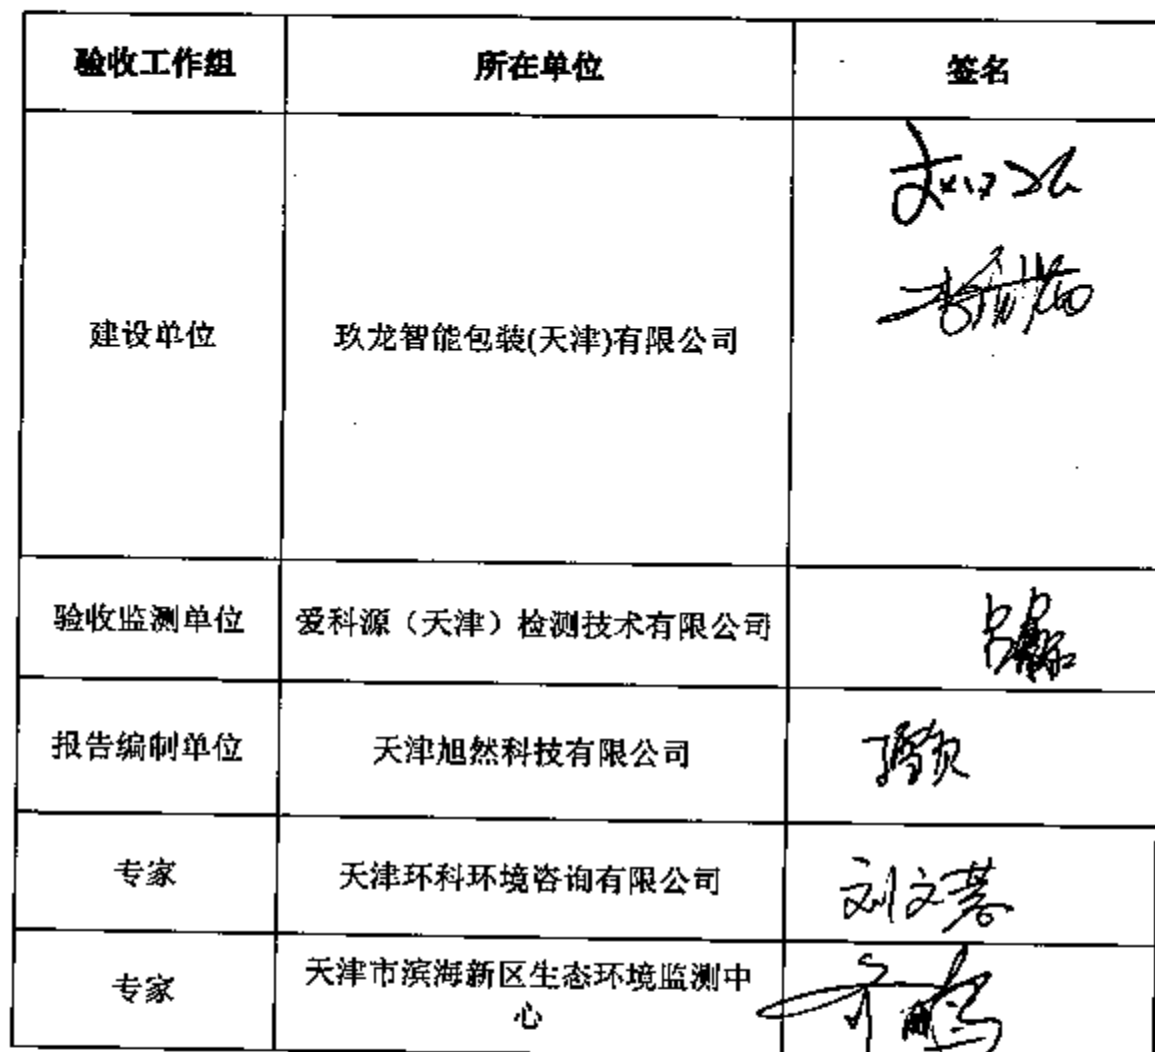 验收工作组 所在单位 签名
建设单位 玖龙智能包装(天津)有限公司
验收监测单位 爱科源（天津）检测技术有限公司
报告编制单位 天津旭然科技有限公司
专家 天津环科环境咨询有限公司 刘文慧
专家 天津市滨海新区生态环境监测中
心